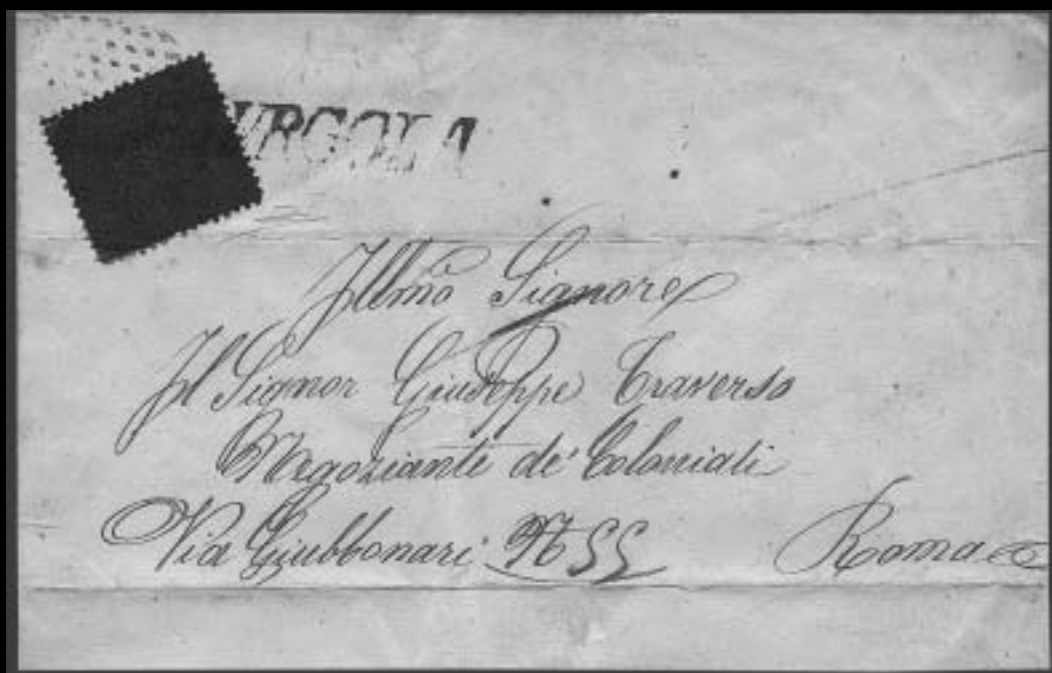 URGOLA
Illmo Signore
Il Signor Giuseppe Traverso
Negoziante de' Coloniali
Via Giubbonari No 55 Roma